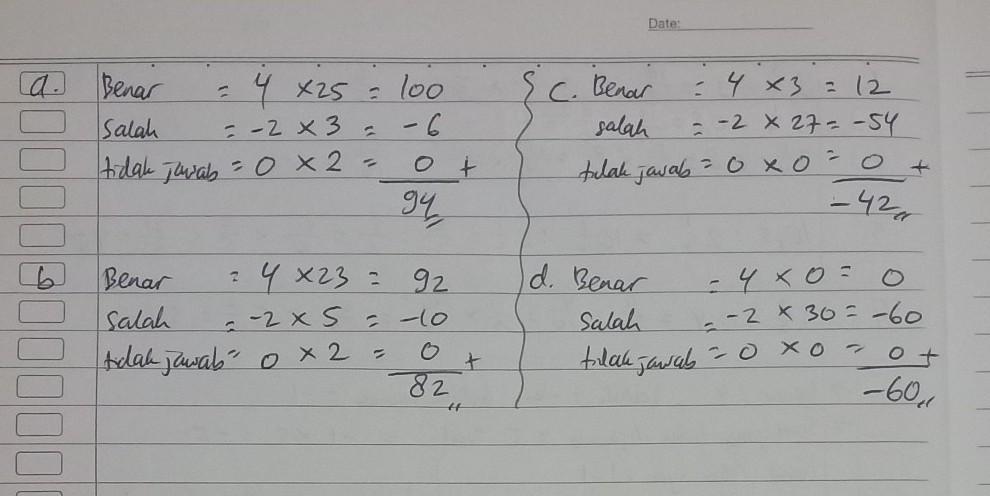 Date:
a. Benar = 4 x 25 = 100
Salah = -2 x 3 = -6
tidak jawab = 0 x 2 = 0 +
94
b Benar = 4 x 23 = 92
Salah = -2 x 5 = -10
tidak jawab = 0 x 2 = 0 +
82
c. Benar = 4 x 3 = 12
salah = -2 x 27 = -54
tidak jawab = 0 x 0 = 0 +
-42
d. Benar = 4 x 0 = 0
Salah = -2 x 30 = -60
tidak jawab = 0 x 0 = 0 +
-60